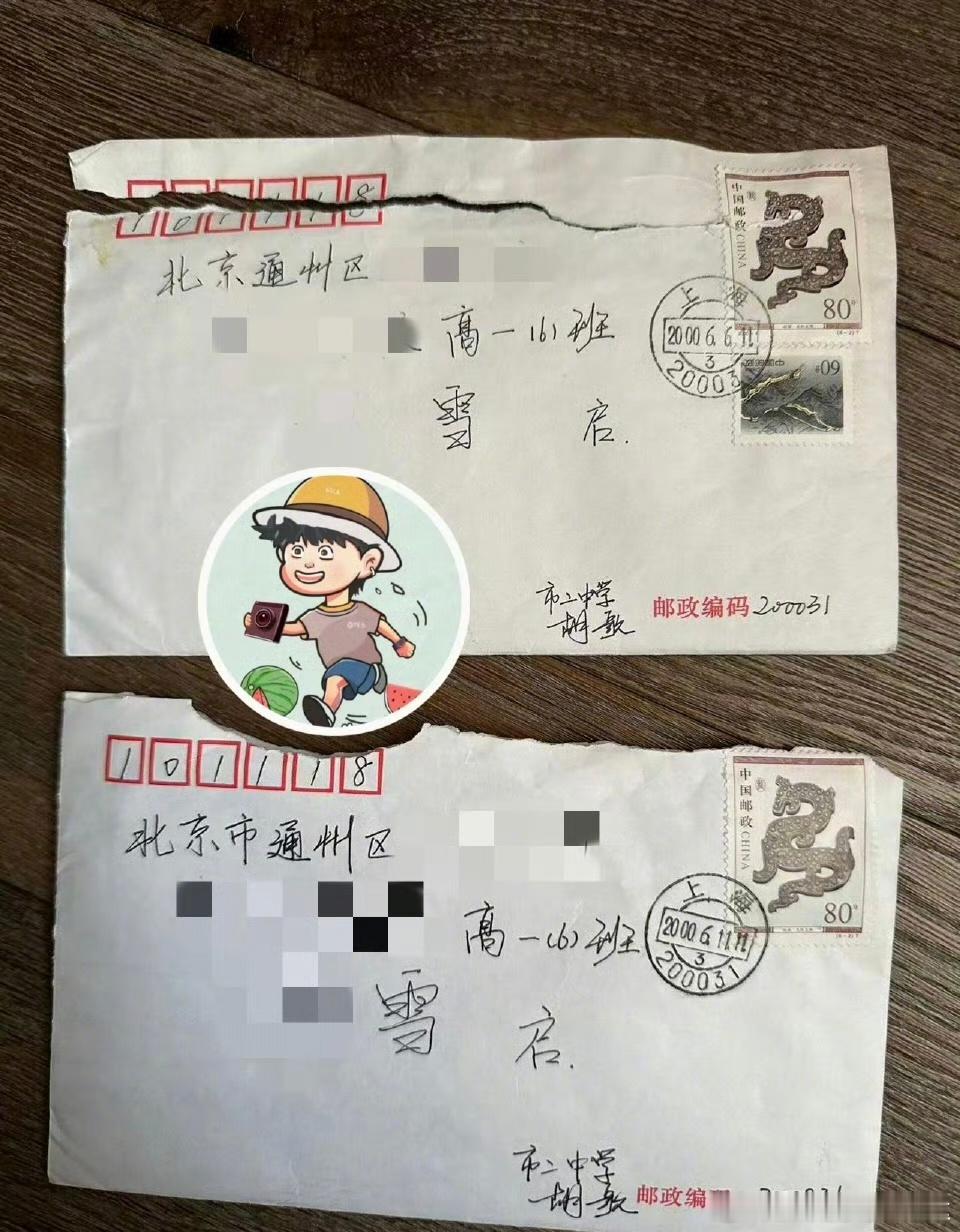 101118
北京通州区
高一(6)班
雪 启.
中国邮政 CHINA
80
上海
2000.6.6.11
3
20003
中国邮政
60
市二中学
胡歌
邮政编码 200031
101118
北京市通州区
高一(6)班
雪 启.
中国邮政 CHINA
80
上海
2000.6.11.11
3
200031
市二中学
胡歌
邮政编